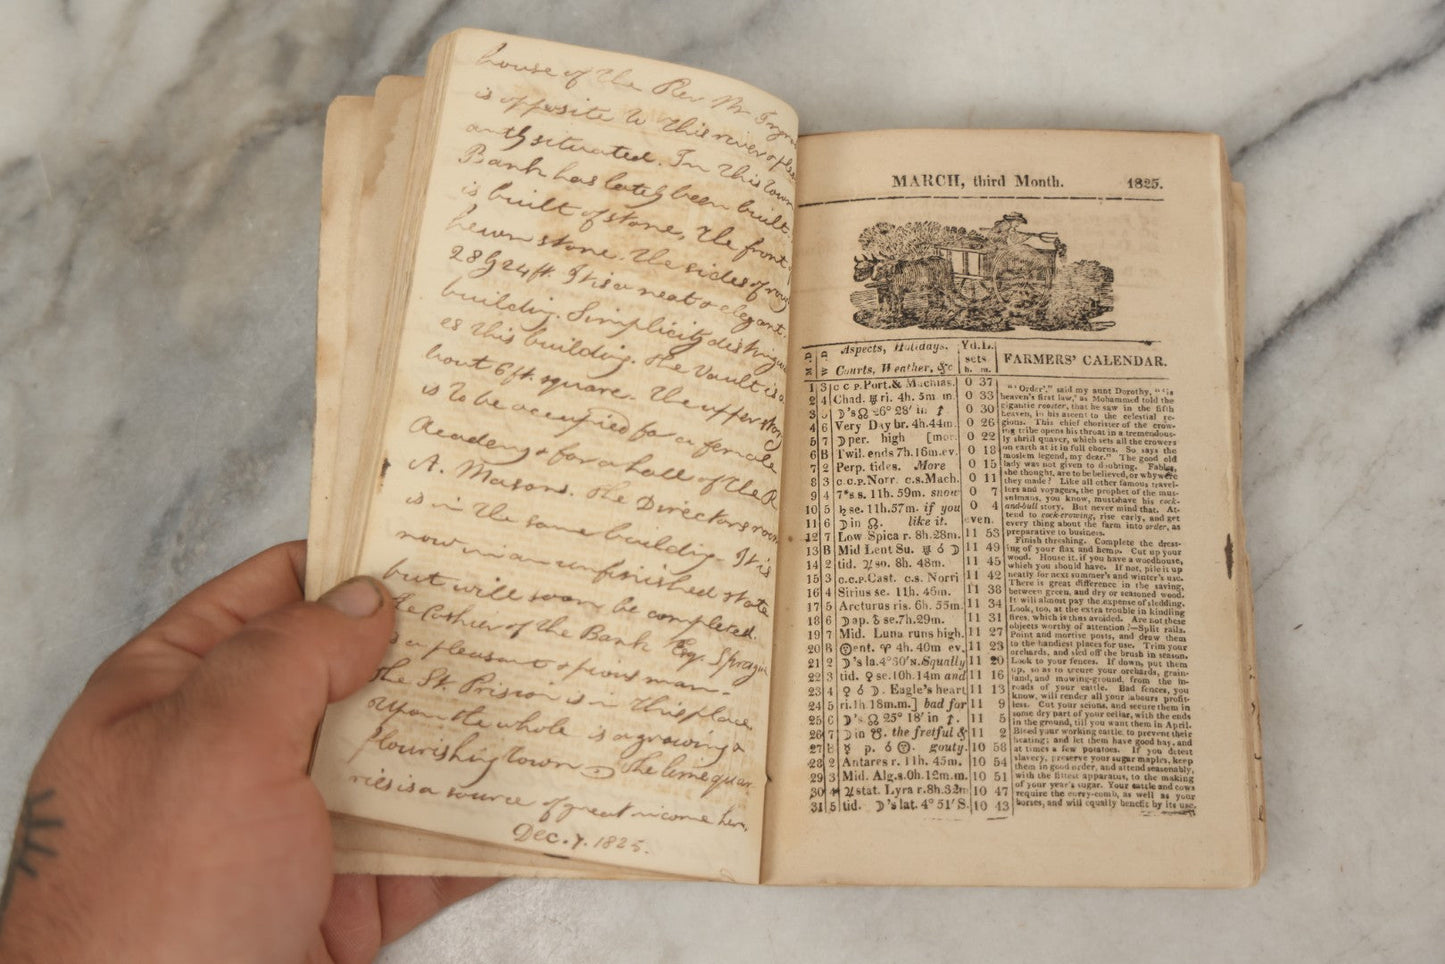 house of the Rev Mr Ingra
is opposite to this river & pleas
antly situated. In this town
Bank has lately been built.
is built of stone, the front of
hewn stone. the sides of rough
28 by 24 ft. It is a neat & elegant
building. Simplicity distinguish
es this building. The Vault is a
bout 6 ft. square. The upper story
is to be occupied for a female
Academy & for a hall of the R
A. Masons. The Directors room
is in the same building. It is
now in an unfinished state
but will soon be completed.
The Cashier of the Bank Esq. Sprague
is a pleasant & pious man-
The St. Prision is in this place
Upon the whole is a growing &
flourishing town The lime quar
ries is a source of great income here.
Dec. 7. 1825.
MARCH, third Month. 1825.
M.D W.D Aspects, Holidays, Courts, Weather, &c Yd.L. sets h. m. FARMERS' CALENDAR.
1 3 c c p. Port. & Machias. 0 37
2 4 Chad. ♅ ri. 4h. 5m m. 0 33
3 5 ☽'s ☊ 26° 28' in 0 30
4 6 Very Day br. 4h. 44m. 0 26
5 7 ☽ per. high [mor. 0 22
6 B Twil. ends 7h. 16m. ev. 0 18
7 2 Perp. tides. More 0 15
8 3 c.c.p. Norr. c.s. Mach. 0 11
9 4 7*s s. 11h. 59m. snow 0 7
10 5 ♄ se. 11h. 57m. if you 0 4
11 6 ☽ in ☊. like it. even.
12 7 Low Spica r. 8h. 28m. 11 53
13 B Mid Lent Su. ♅ ☌ ☽ 11 49
14 2 tid. ♃ so. 8h. 48m. 11 45
15 3 c.c.p. Cast. c.s. Norri 11 42
16 4 Sirius se. 11h. 46m. 11 38
17 5 Arcturus ris. 6h. 55m. 11 34
18 6 ☽ ap. se. 7h. 29m. 11 31
19 7 Mid. Luna runs high. 11 27
20 B ent. ♈ 4h. 40m ev. 11 23
21 2 ☽'s la. 4° 50's. Squally 11 20
22 3 tid. ♀ se. 10h. 14m and 11 16
23 4 ♀ ☌ ☽. Eagle's heart 11 13
24 5 ri. 1h 18m. m.] bad for 11 9
25 6 ☽'s ☊ 25° 18' in 11 5
26 7 ☽ in ☋. the fretful & 11 2
27 B ☿ p. ☌ gouty. 10 58
28 2 Antares r. 11h. 45m. 10 54
29 3 Mid. Alg. s. 0h. 12m. m. 10 51
30 4 ♃ stat. Lyra r. 8h. 32m 10 47
31 5 tid. ☽'s lat. 4° 51' S. 10 43
"'Order'," said my aunt Dorothy, "'is
heaven's first law,' as Mohammed told the
gigantic rooster, that he saw in the fifth
heaven, in his ascent to the celestial re-
gions. This chief chorister of the crow-
ing tribe opens his throat in a tremendous-
ly shrill quaver, which sets all the crowers
on earth at it in full chorus. So says the
moslem legend, my dear." The good old
lady was not given to doubting. Fables,
she thought, are to be believed, or why were
they made? Like all other famous travel-
lers and voyagers, the prophet of the mus-
selmans, you know, must have his cock-
and-bull story. But never mind that. At-
tend to cock-crowing, rise early, and get
every thing about the farm into order, as
preparative to business.
Finish threshing. Complete the dress-
ing of your flax and hemp. Cut up your
wood. House it, if you have a woodhouse,
which you should have. If not, pile it up
neatly for next summer's and winter's use.
There is great difference in the saving,
between green, and dry or seasoned wood.
It will almost pay the expense of sledding.
Look, too, at the extra trouble in kindling
fires, which is thus avoided. Are not these
objects worthy of attention?—Split rails.
Point and mortise posts, and draw them
to the handiest places for use. Trim your
orchards, and sled off the brush in season.
Look to your fences. If down, put them
up, so as to secure your orchards, grain-
land, and mowing-ground, from the in-
roads of your cattle. Bad fences, you
know, will render all your labours profit-
less. Cut your scions, and secure them in
some dry part of your cellar, with the ends
in the ground, till you want them in April.
Bleed your working cattle, to prevent their
heating; and let them have good hay, and
at times a few potatoes. If you detest
slavery, preserve your sugar maples, keep
them in good order, and attend seasonably,
with the fittest apparatus, to the making
of your year's sugar. Your cattle and cows
require the curry-comb, as well as your
horses, and will equally benefit by its use.